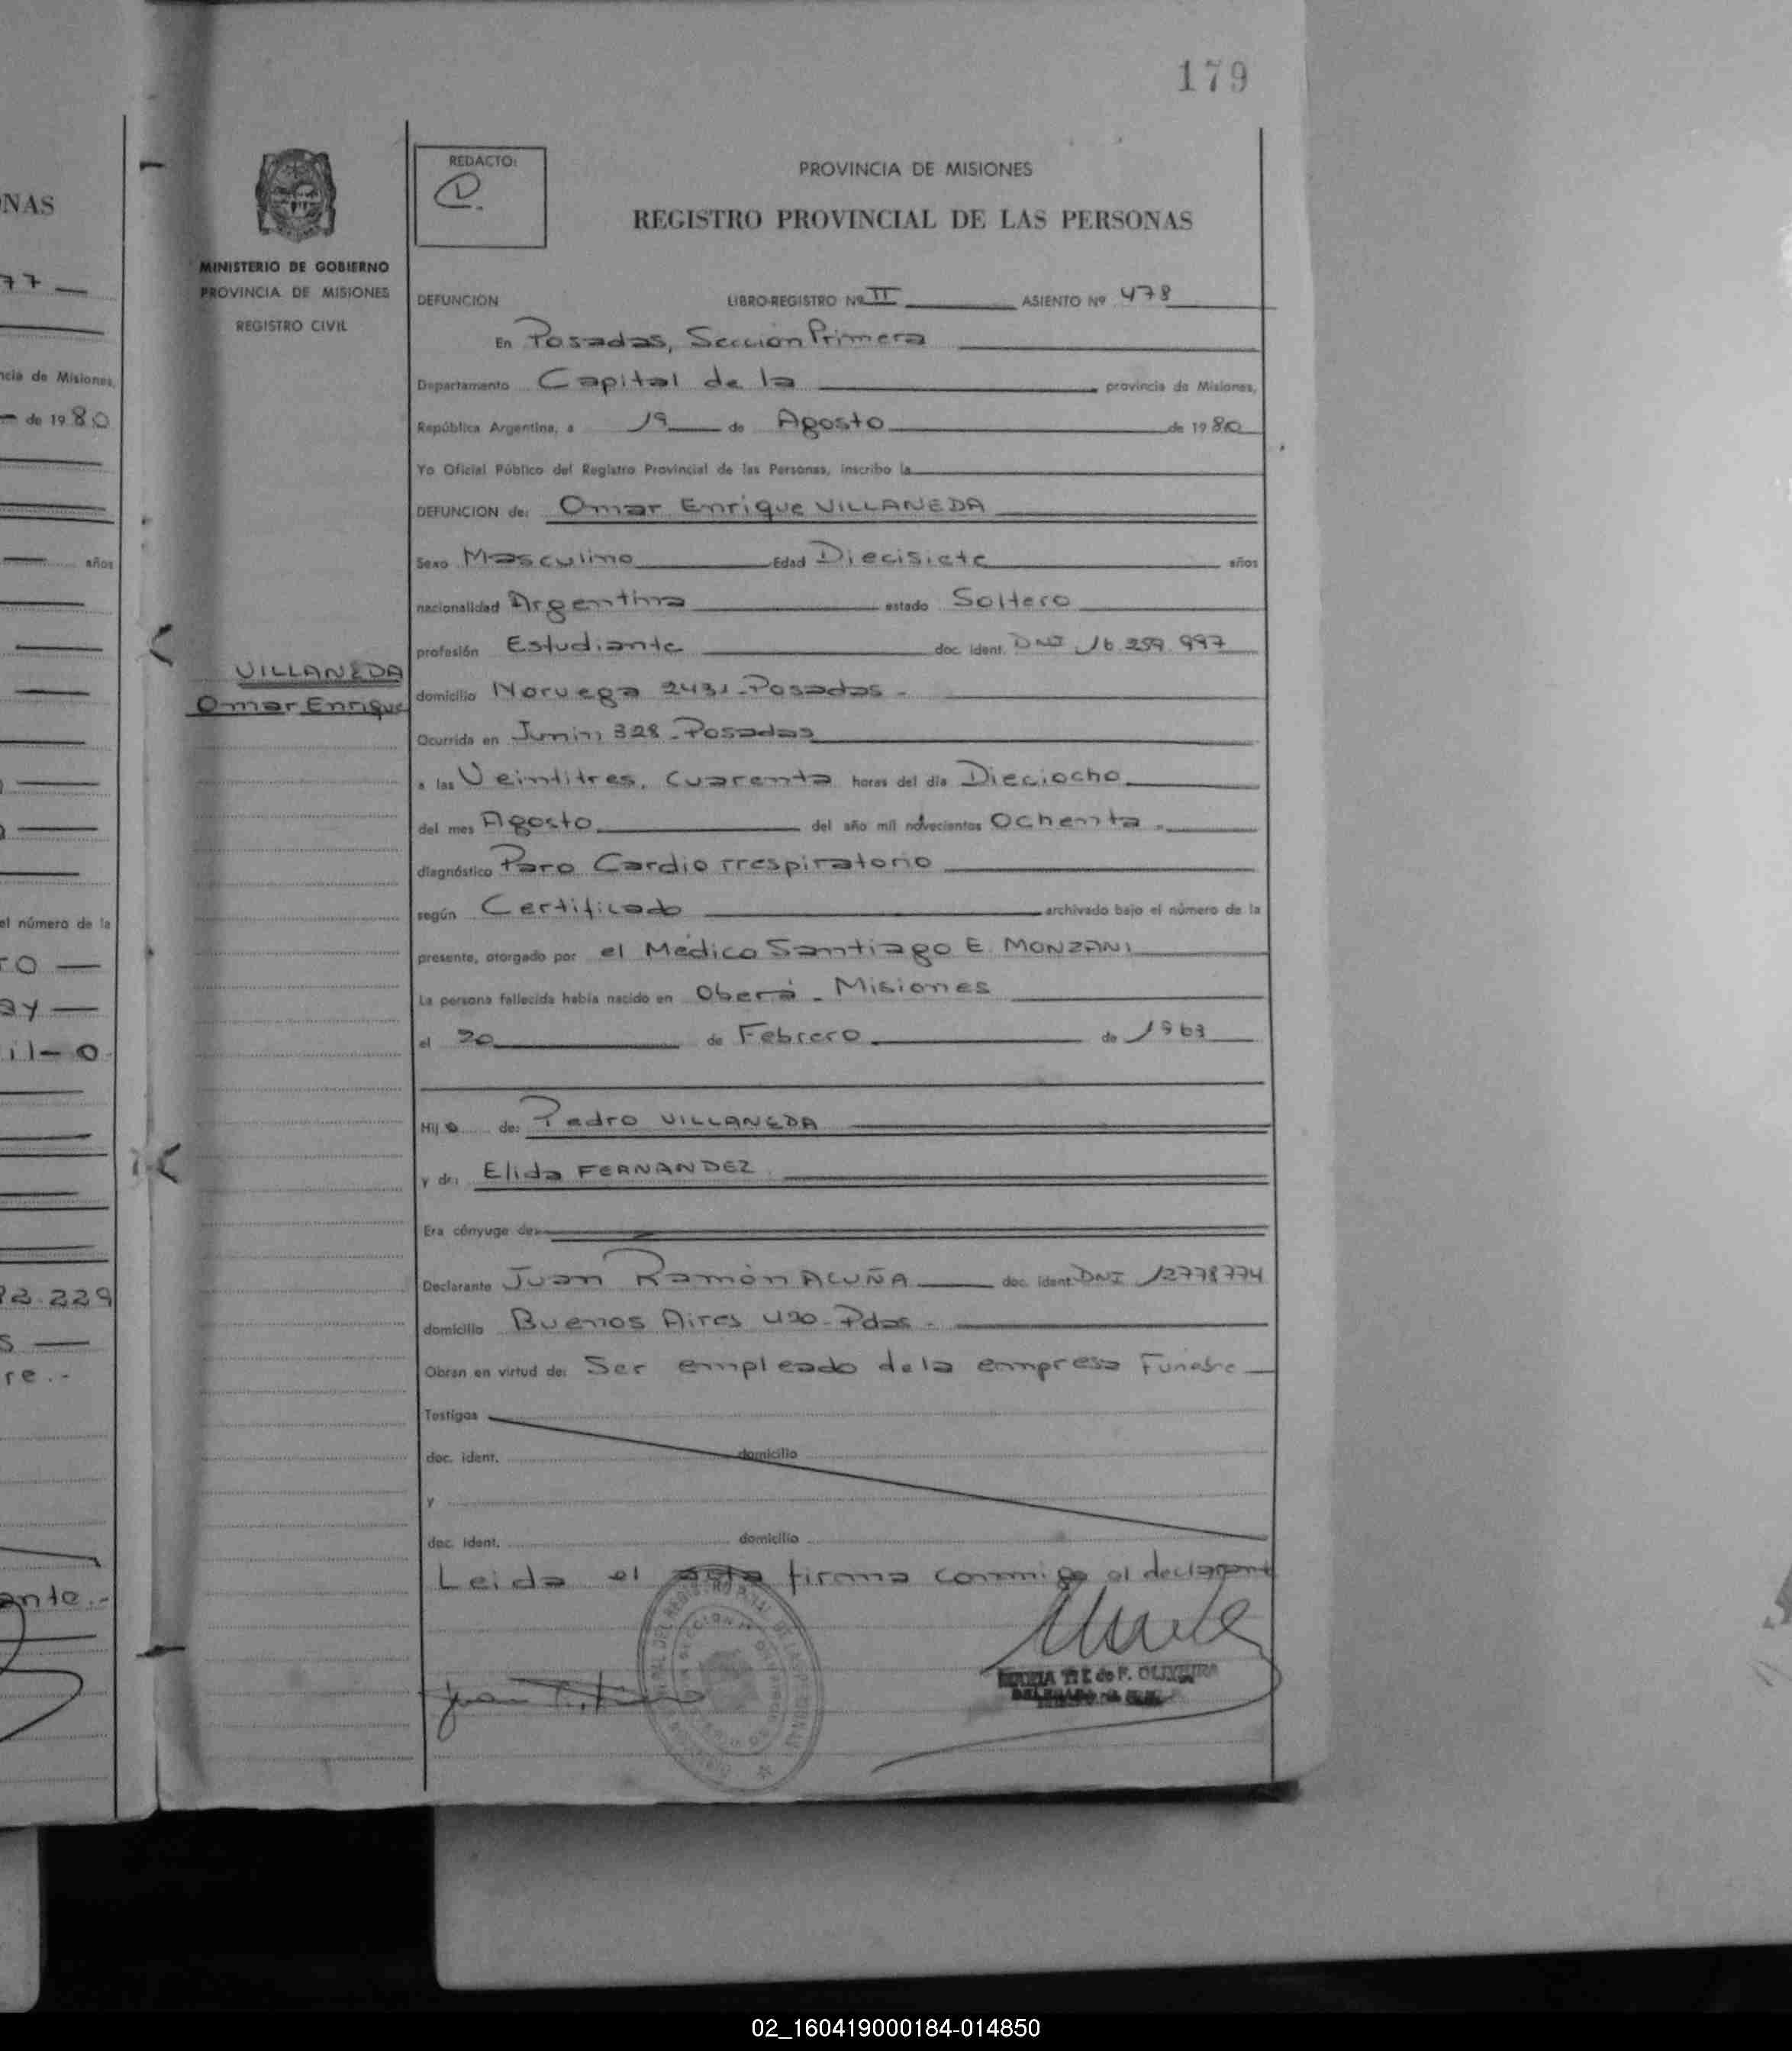 179
NAS
77
ncia de Misiones,
de 1980
años
el número de la
TO
ay
il-o
92.229
s
re.-
ante.-
MINISTERIO DE GOBIERNO
PROVINCIA DE MISIONES
REGISTRO CIVIL
VILLANEDA
Omar Enrique
REDACTO:
PROVINCIA DE MISIONES
REGISTRO PROVINCIAL DE LAS PERSONAS
DEFUNCION LIBRO-REGISTRO Nº II ASIENTO Nº 478
En Posadas, Sección Primera
Departamento Capital de la provincia de Misiones,
República Argentina, a 19 de Agosto de 1980
Yo Oficial Público del Registro Provincial de las Personas, inscribo la
DEFUNCION de: Omar Enrique VILLANEDA
Sexo Masculino Edad Diecisiete años
nacionalidad Argentina estado Soltero
profesión Estudiante doc. ident. DNI 16.259.997
domicilio Noruega 2431-Posadas-
Ocurrida en Junin 328-Posadas
a las Veintitres, cuarenta horas del día Dieciocho
del mes Agosto del año mil novecientos Ochenta.
diagnóstico Paro Cardiorrespiratorio
según Certificado archivado bajo el número de la
presente, otorgado por el Médico Santiago E. MONZANI
La persona fallecida había nacido en Oberá - Misiones
el 20 de Febrero de 1963
Hijo de: Pedro VILLANEDA
y de: Elida FERNANDEZ
Era cónyuge de:
Declarante Juan Ramón ACUÑA doc. ident. DNI 12778774
domicilio Buenos Aires Pdas-
Obran en virtud de: Ser empleado de la empresa Funebre
Testigos
doc. ident. domicilio
y
doc. ident. domicilio
Leida el acta firma conmigo el declarant
MARIA de F. OLIVEIRA
02_160419000184-014850